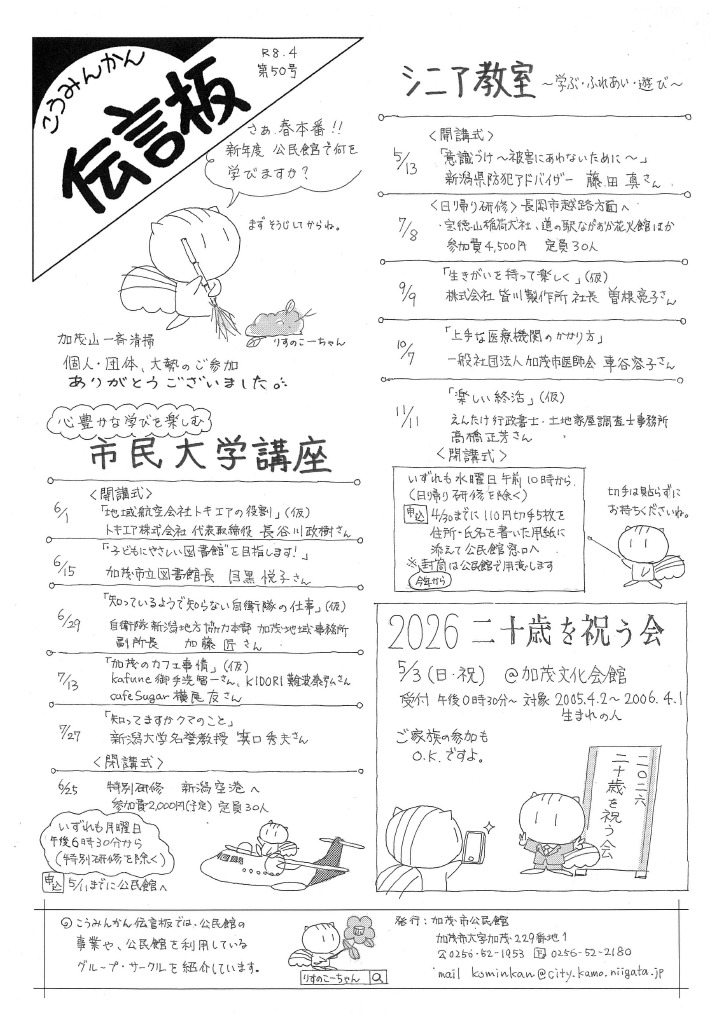 こうみんかん
伝言板
R8.4
第50号
さあ、春本番!!
新年度 公民館で何を
学びますか?
まずそうじしてからね。
りすのこーちゃん
加茂山一斉清掃
個人・団体、大勢のご参加
ありがとうございました。
心豊かな学びを楽しむ
市民大学講座
<開講式>
6/1
「地域航空会社トキエアの役割」(仮)
トキエア株式会社 代表取締役 長谷川政樹さん
6/15
「"子どもにやさしい図書館"を目指します!」
加茂市立図書館長 目黒悦子さん
6/29
「知っているようで知らない自衛隊の仕事」(仮)
自衛隊新潟地方協力本部 加茂地域事務所
副所長 加藤 匠さん
7/13
「加茂のカフェ事情」(仮)
kafune 御手洗 さん、KIDORI 難波 さん
cafeSugar 横尾 友さん
7/27
「知ってますかクマのこと」
新潟大学名誉教授 口秀夫さん
<閉講式>
6/25
特別研修 新潟空港へ
参加費2,000円(予定) 定員30人
いずれも月曜日
午後6時30分から
(特別研修を除く)
申込 5/11までに公民館へ
シニア教室 ~学ぶ・ふれあい・遊び~
<開講式>
5/13
「意識づけ~被害にあわないために~」
新潟県防犯アドバイザー 藤田 真さん
7/8
<日帰り研修> 長岡市越路方面へ
・宝徳山稲荷大社、道の駅ながおか花火館ほか
参加費4,500円 定員30人
9/9
「生きがいを持って楽しく」(仮)
株式会社 皆川製作所 社長 曽根亮子さん
10/7
「上手な医療機関のかかり方」
一般社団法人加茂市医師会 車谷容子さん
11/11
「楽しい終活」(仮)
えんたけ行政書士・土地家屋調査士事務所
高橋正芳さん
<閉講式>
いずれも水曜日午前10時から
(日帰り研修を除く)
申込 4/30までに110円切手5枚を
住所・氏名を書いた用紙に
添えて公民館窓口へ
※封筒は公民館で用意します
今年から
切手は貼らずに
お持ちくださいね。
2026 二十歳を祝う会
5/3(日・祝) @加茂文化会館
受付 午後0時30分~ 対象 2005.4.2~2006.4.1
生まれの人
ご家族の参加も
O.K.ですよ。
二〇二六
二十歳を祝う会
◎こうみんかん伝言板では、公民館の
事業や、公民館を利用している
グループ・サークルを紹介しています。
りすのこーちゃん
発行:加茂市公民館
加茂市大字加茂229番地1
☎0256-52-1953 FAX 0256-52-2180
mail kominkan@city.kamo.niigata.jp